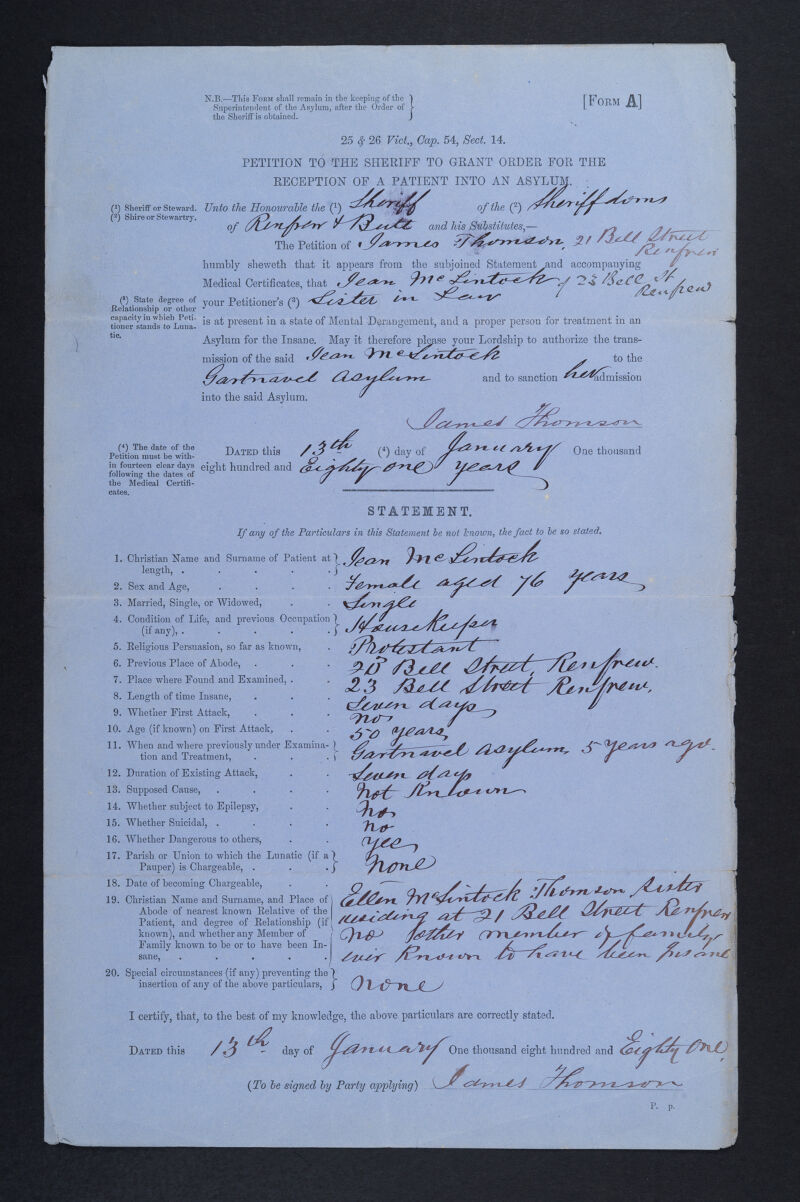 N.B.—This Form shall remain in the keeping of the
Superintendent of the Asylum, after the Order of
the Sheriff is obtained.
[Form A]
25 & 26 Vict., Cap. 54, Sect. 14.
PETITION TO THE SHERIFF TO GRANT ORDER FOR THE
RECEPTION OF A PATIENT INTO AN ASYLUM.
(1) Sheriff or Steward.
(2) Shire or Stewartry.
Unto the Honourable the (1) Sheriff of the (2) Sheriffdoms
of Renfrew & Bute and his Substitutes,—
The Petition of James Thomson, 21 Bell Street
Renfrew
humbly sheweth that it appears from the subjoined Statement and accompanying
Medical Certificates, that Jean McLintock of 23 Bell St
Renfrew
(3) State degree of
Relationship or other
capacity in which Peti-
tioner stands to Luna-
tic.
your Petitioner's (3) Sister in Law
is at present in a state of Mental Derangement, and a proper person for treatment in an
Asylum for the Insane. May it therefore please your Lordship to authorize the trans-
mission of the said Jean McLintock to the
Gartnavel Asylum and to sanction her admission
into the said Asylum.
James Thomson
(4) The date of the
Petition must be with-
in fourteen clear days
following the dates of
the Medical Certifi-
cates.
Dated this 13th (4) day of January One thousand
eight hundred and Eighty one years
STATEMENT.
If any of the Particulars in this Statement be not known, the fact to be so stated.
1. Christian Name and Surname of Patient at
length, . . . . . . Jean McLintock
2. Sex and Age, . . . . Female aged 76 years
3. Married, Single, or Widowed, . . Single
4. Condition of Life, and previous Occupation
(if any), . . . . . . HouseKeeper
5. Religious Persuasion, so far as known, . Protestant
6. Previous Place of Abode, . . . Bell Street, Renfrew.
7. Place where Found and Examined, . . 23 Bell Street Renfrew.
8. Length of time Insane, . . . Seven days
9. Whether First Attack, . . . no
10. Age (if known) on First Attack, . . 50 years
11. When and where previously under Examina-
tion and Treatment, . . . . Gartnavel Asylum, 5 years ago.
12. Duration of Existing Attack, . . Seven days
13. Supposed Cause, . . . . Not Known
14. Whether subject to Epilepsy, . . No
15. Whether Suicidal, . . . . no
16. Whether Dangerous to others, . . yes
17. Parish or Union to which the Lunatic (if a
Pauper) is Chargeable, . . . None
18. Date of becoming Chargeable, . .
19. Christian Name and Surname, and Place of
Abode of nearest known Relative of the
Patient, and degree of Relationship (if
known), and whether any Member of
Family known to be or to have been In-
sane, . . . . . .
Ellen McLintock Thomson Sister
residing at 21 Bell Street Renfrew
No other member of family
ever Known to have been Insane
20. Special circumstances (if any) preventing the
insertion of any of the above particulars, None
I certify, that, to the best of my knowledge, the above particulars are correctly stated.
Dated this 13th day of January One thousand eight hundred and Eighty One.
(To be signed by Party applying) James Thomson
P. p.